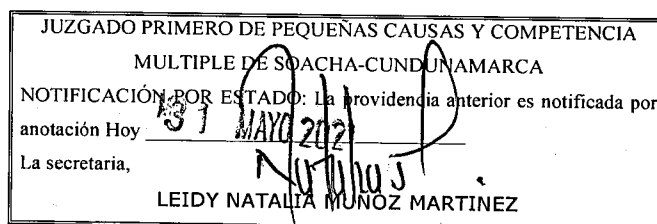 JUZGADO PRIMERO DE PEQUEÑAS CAUSAS Y COMPETENCIA
MULTIPLE DE SOACHA-CUNDUNAMARCA
NOTIFICACIÓN POR ESTADO: La providencia anterior es notificada por
anotación Hoy 31 MAYO 202
La secretaria,
LEIDY NATALIA MUÑOZ MARTINEZ